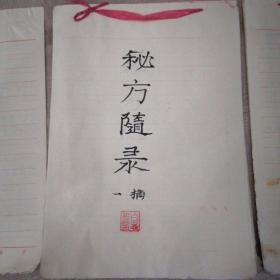 秘方隨录
一摘